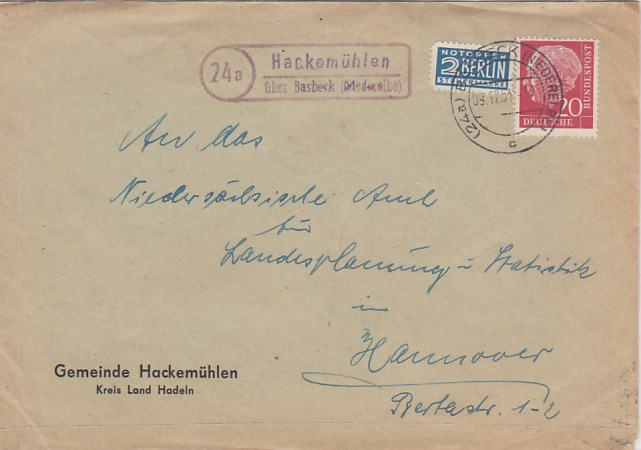 24a
Hackemühlen
über Basbeck (Niederelbe)
NOTOPFER
2 BERLIN
STEUERMARKE
(24a) BASBECK (NIEDERELBE)
09.12.5
c
20
DEUTSCHE
BUNDESPOST
An das
Niedersächsische Amt
für
Landesplanung u Statistik
in
Hannover
Bertastr. 1-2
Gemeinde Hackemühlen
Kreis Land Hadeln